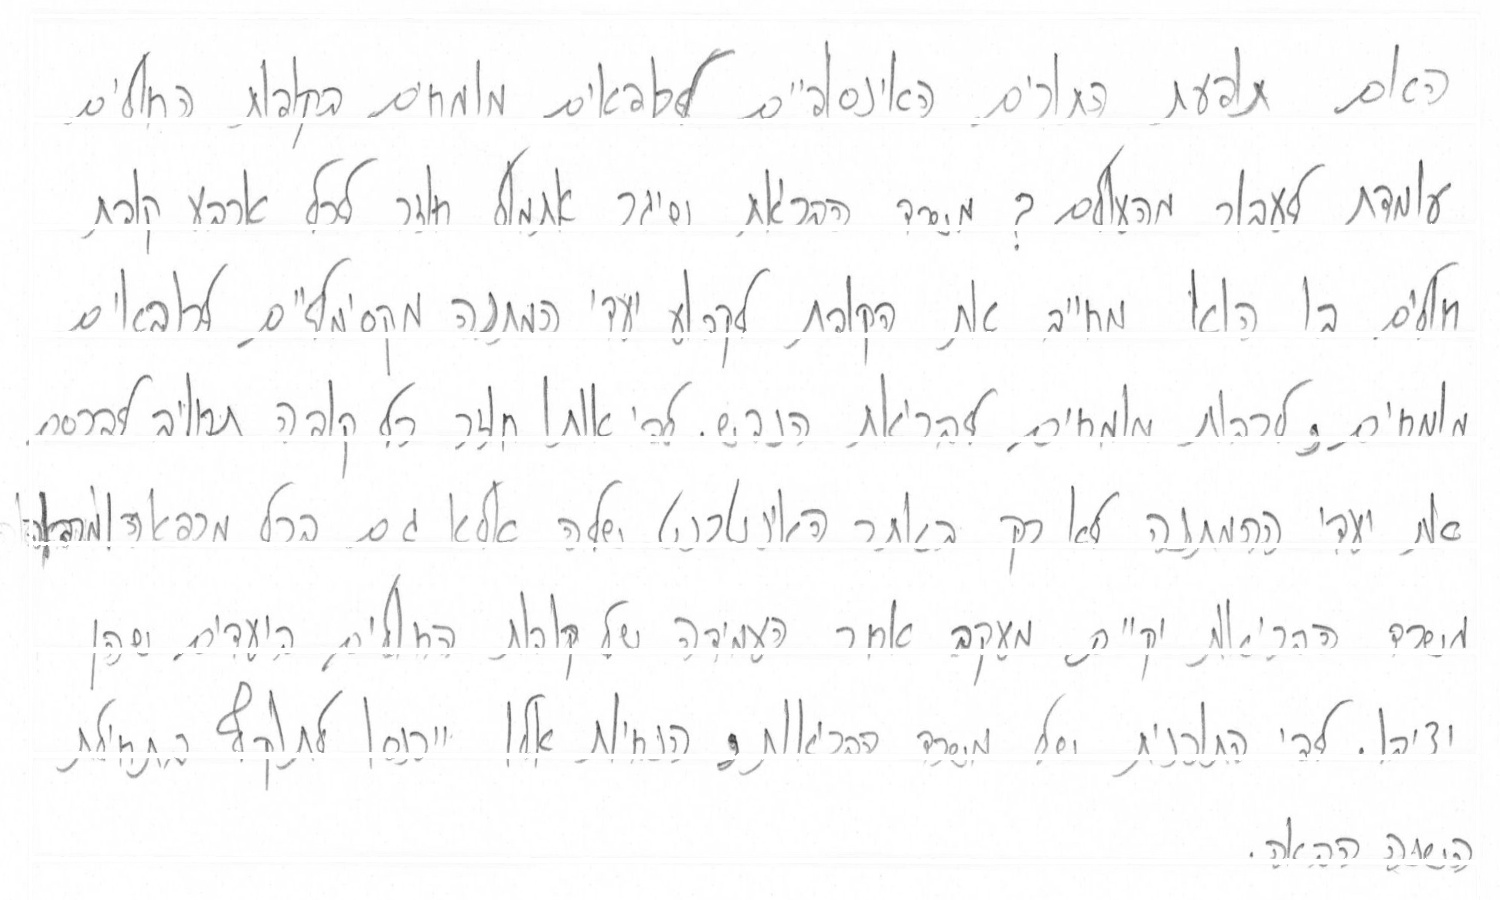 האם תופעת התורים האינסופיים לרופאים מומחים בקופות החולים
עומדת לעבור מהעולם? משרד הבריאות שיגר אתמול חוזר לכל ארבע קופות
חולים בו הוא מחייב את הקופות לקבוע יעדי המתנה מקסימליים לרופאים
מומחים, לרבות מומחים לבריאות הנפש. לפי אותו חוזר כל קופה תחויב לפרסם
את יעדי ההמתנה לא רק באתר האינטרנט שלה אלא גם בכל מרפאה
משרד הבריאות יקיים מעקב אחר העמידה של קופות החולים ביעדים שהן
יציבו. לפי התוכנית של משרד הבריאות, הנחיות אלו ייכנסו לתוקף בתחילת
השנה הבאה.